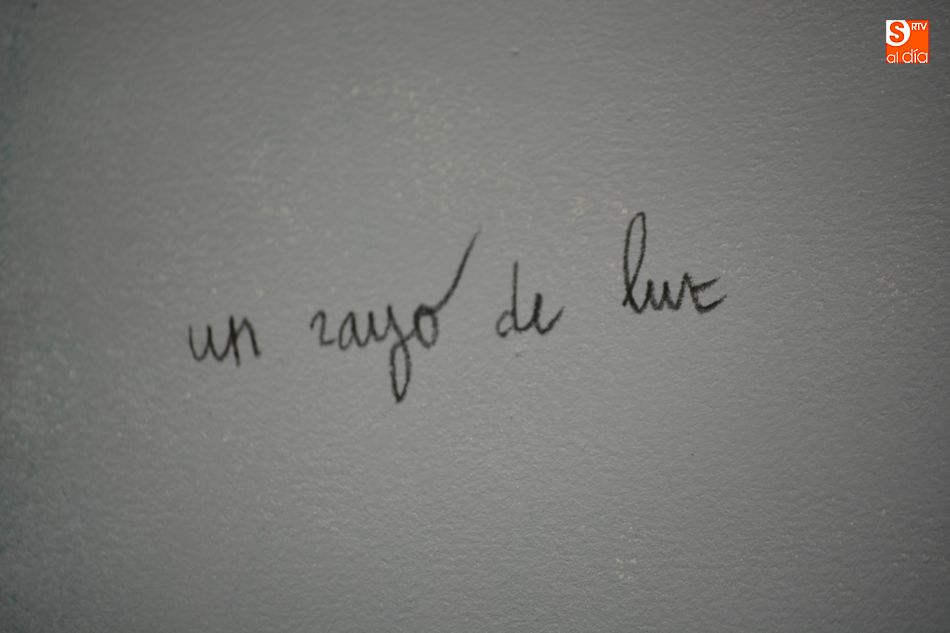 S RTV
al día
un rayo de luz